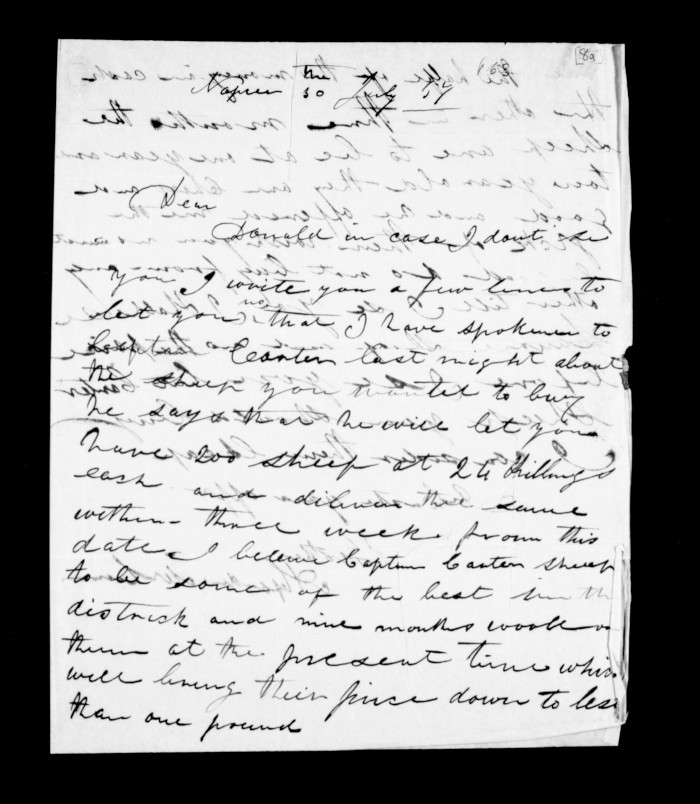 89
Napier the
30 July 57
Dear
Donald in case I dont see
you I write you a few lines to
let you no that I have spokenen to
Captan Canten last night about
the sheep you wantet to buy
he says that he will let you
have 200 sheep at 24 shillings
each and deliver the same
within three week from this
date I beleive Captin Canten sheep
to be some of the best in th
district and nine months wool on
them at the present time which
will bring their price down to less
than one pound